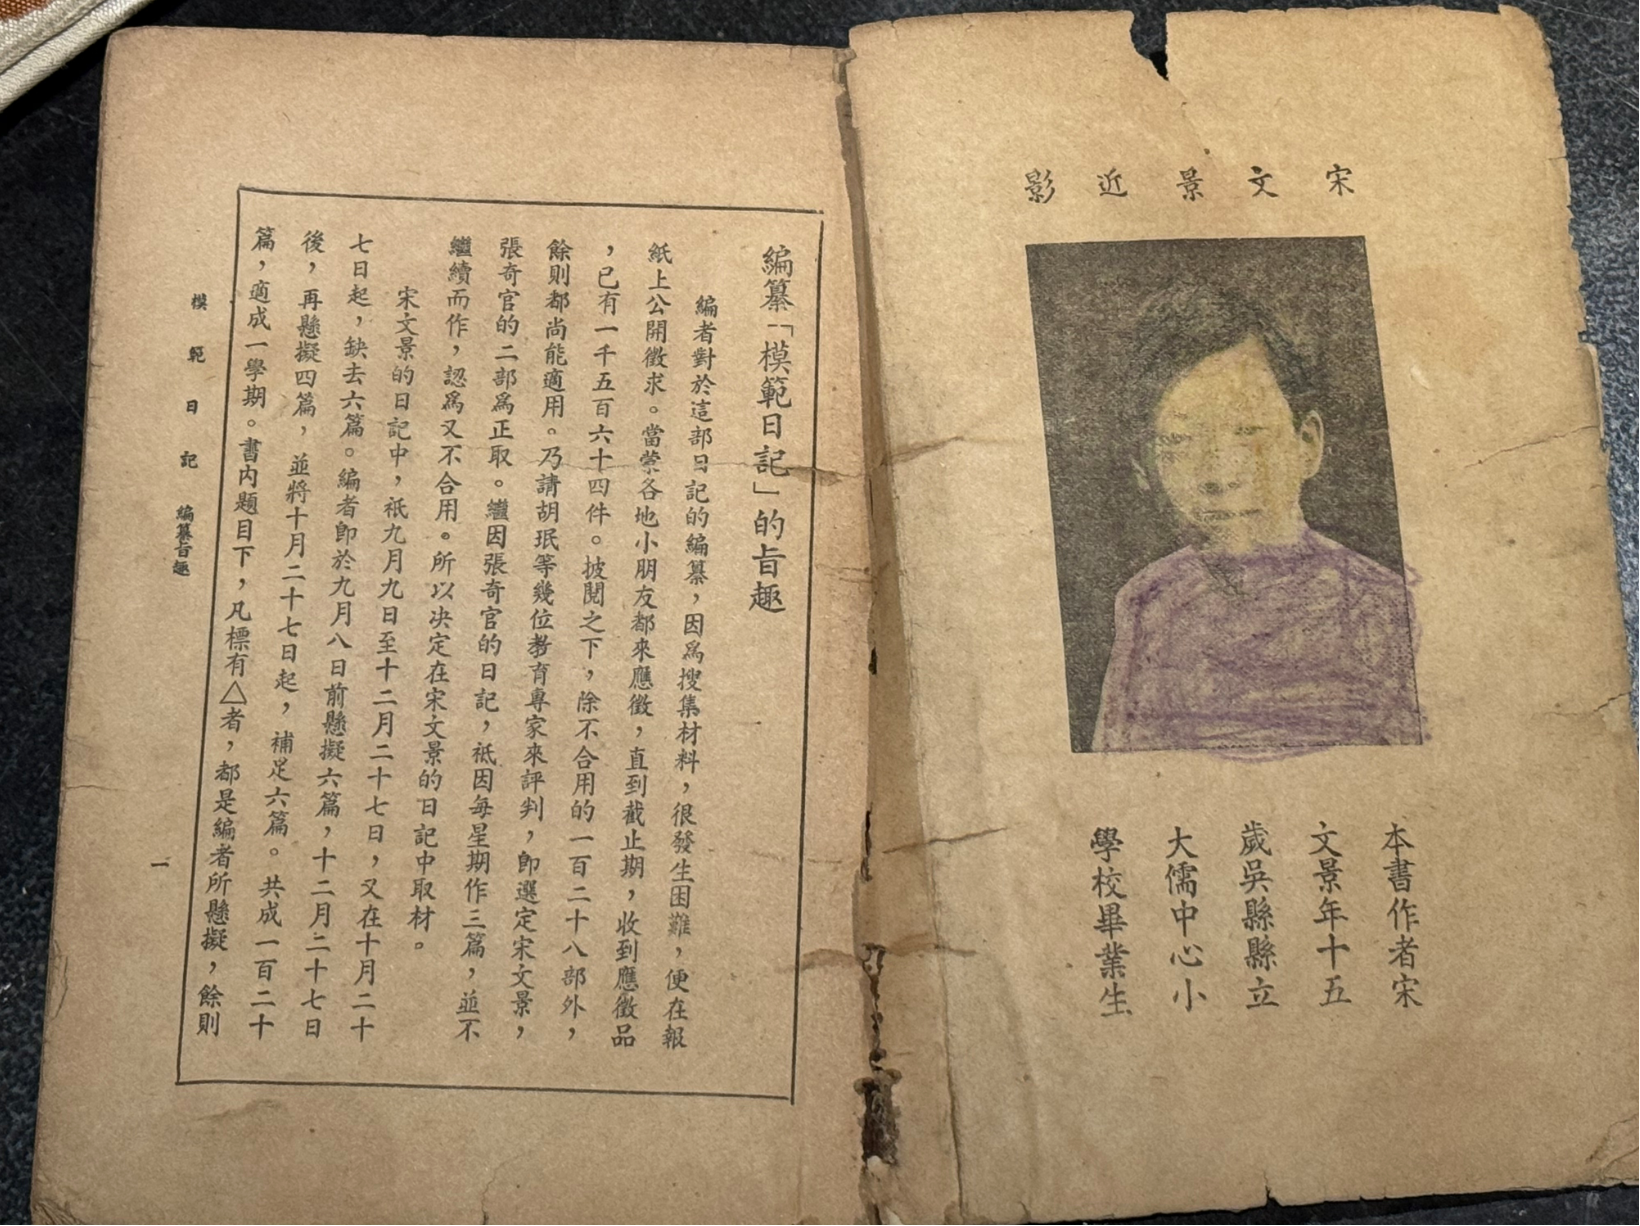 宋文景近影
本書作者宋
文景年十五
歲吳縣縣立
大儒中心小
學校畢業生
編纂「模範日記」的旨趣
編者對於這部日記的編纂，因爲搜集材料，很發生困難，便在報
紙上公開徵求。當蒙各地小朋友都來應徵，直到截止期，收到應徵品
，已有一千五百六十四件。披閱之下，除不合用的一百二十八部外，
餘則都尚能適用。乃請胡珉等幾位教育專家來評判，卽選定宋文景，
張奇官的二部爲正取。繼因張奇官的日記，祗因每星期作三篇，並不
繼續而作，認爲又不合用。所以决定在宋文景的日記中取材。
宋文景的日記中，祇九月九日至十二月二十七日，又在十月二十
七日起，缺去六篇。編者卽於九月八日前懸擬六篇，十二月二十七日
後，再懸擬四篇，並將十月二十七日起，補足六篇。共成一百二十
篇，適成一學期。書内題目下，凡標有△者，都是編者所懸擬，餘則
模範日記 編纂旨趣
一